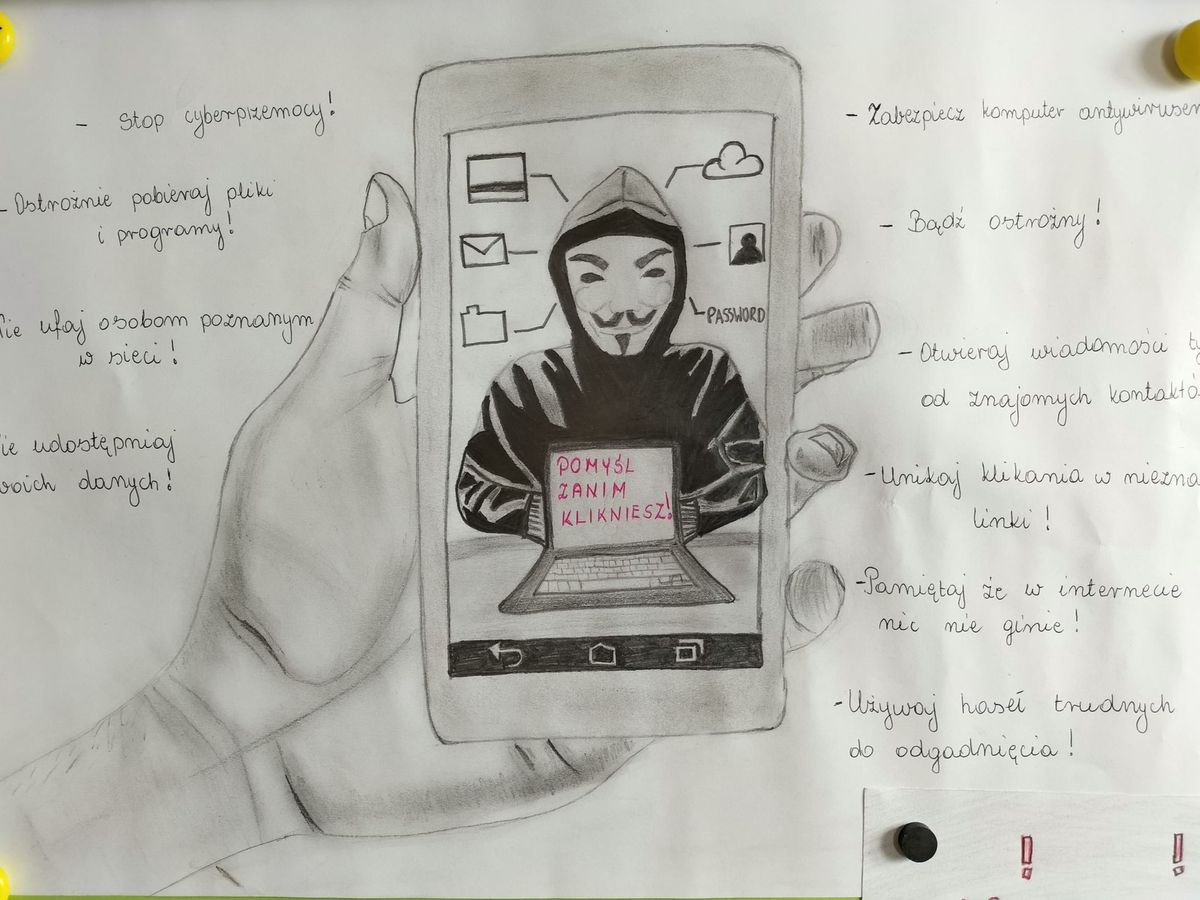 - Stop cyberprzemocy!
- Ostrożnie pobieraj pliki
i programy!
ufaj osobom poznanym
w sieci!
udostępniaj
danych!
PASSWORD
POMYŚL
ZANIM
KLIKNIESZ!
- Zabezpiecz komputer
- Bądź ostrożny!
- Otwieraj wiadomości
od znajomych
- Unikaj klikania w
linki!
- Pamiętaj że w internecie
nic nie ginie!
- Używaj haseł trudnych
do odgadnięcia!
! !